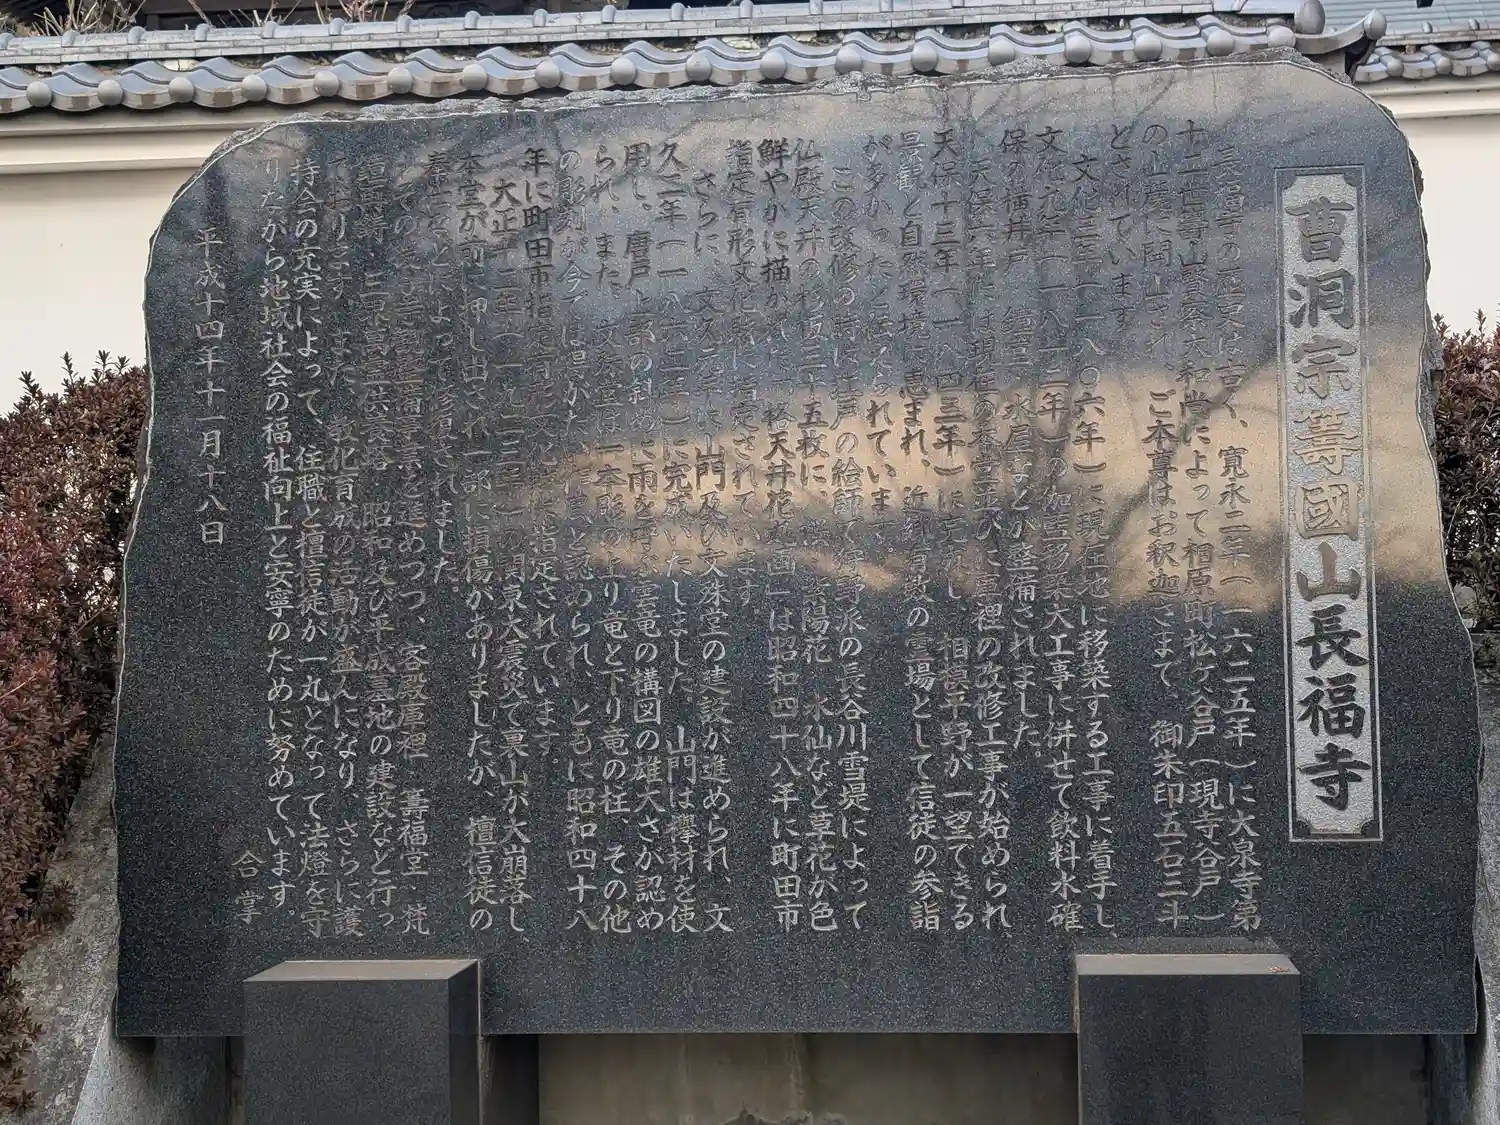 曹洞宗籌國山長福寺
長福寺の歴史は古く、寛永二年(一六二五年)に大泉寺第
十二世籌山賢察大和尚によって相原町松ケ谷戸(現寺谷戸)
の山麓に開山され、ご本尊はお釈迦さまで、御朱印五石三斗
とされています。
文化三年(一八〇六年)に現在地に移築する工事に着手し、
文化九年(一八一二年)の伽藍移築大工事に併せて飲料水確
保の横井戸、鐘堂、水屋などが整備されました。
天保六年には現在の本堂並びに庫裡の改修工事が始められ
天保十三年(一八四三年)に完成し、相模平野が一望できる
景観と自然環境に恵まれ、近郷有数の霊場として信徒の参詣
が多かったと伝えられています。
この改修の時に江戸の絵師で狩野派の長谷川雪堤によって
仏殿天井の杉板三十五枚に、桜、紫陽花、水仙など草花が色
鮮やかに描かれた「格天井花丸画」は昭和四十八年に町田市
指定有形文化財に指定されています。
さらに、文久元年に山門及び文殊堂の建設が進められ、文
久二年(一八六二年)に完成いたしました。山門は欅材を使
用し、唐戸上部の斜めに雨を呼ぶ雲竜の構図の雄大さが認め
られ、また、文殊堂は一本彫の上り竜と下り竜の柱、その他
の彫刻が今では得がたい作員と認められ、ともに昭和四十八
年に町田市指定有形文化財に指定されています。
大正十二年(一九二三年)の関東大震災で裏山が大崩落し、
本堂が前に押し出され一部に損傷がありましたが、檀信徒の
奉仕などによって修復されました。
その後寺院整備事業を進めつつ、客殿庫裡、籌福堂、梵
鐘、三界萬霊供養塔、昭和及び平成墓地の建設などと行っ
ております。また、教化育成の活動が盛んになり、さらに護
持会の充実によって、住職と檀信徒が一丸となって法燈を守
りながら地域社会の福祉向上と安寧のために努めています。
合掌
平成十四年十一月十八日